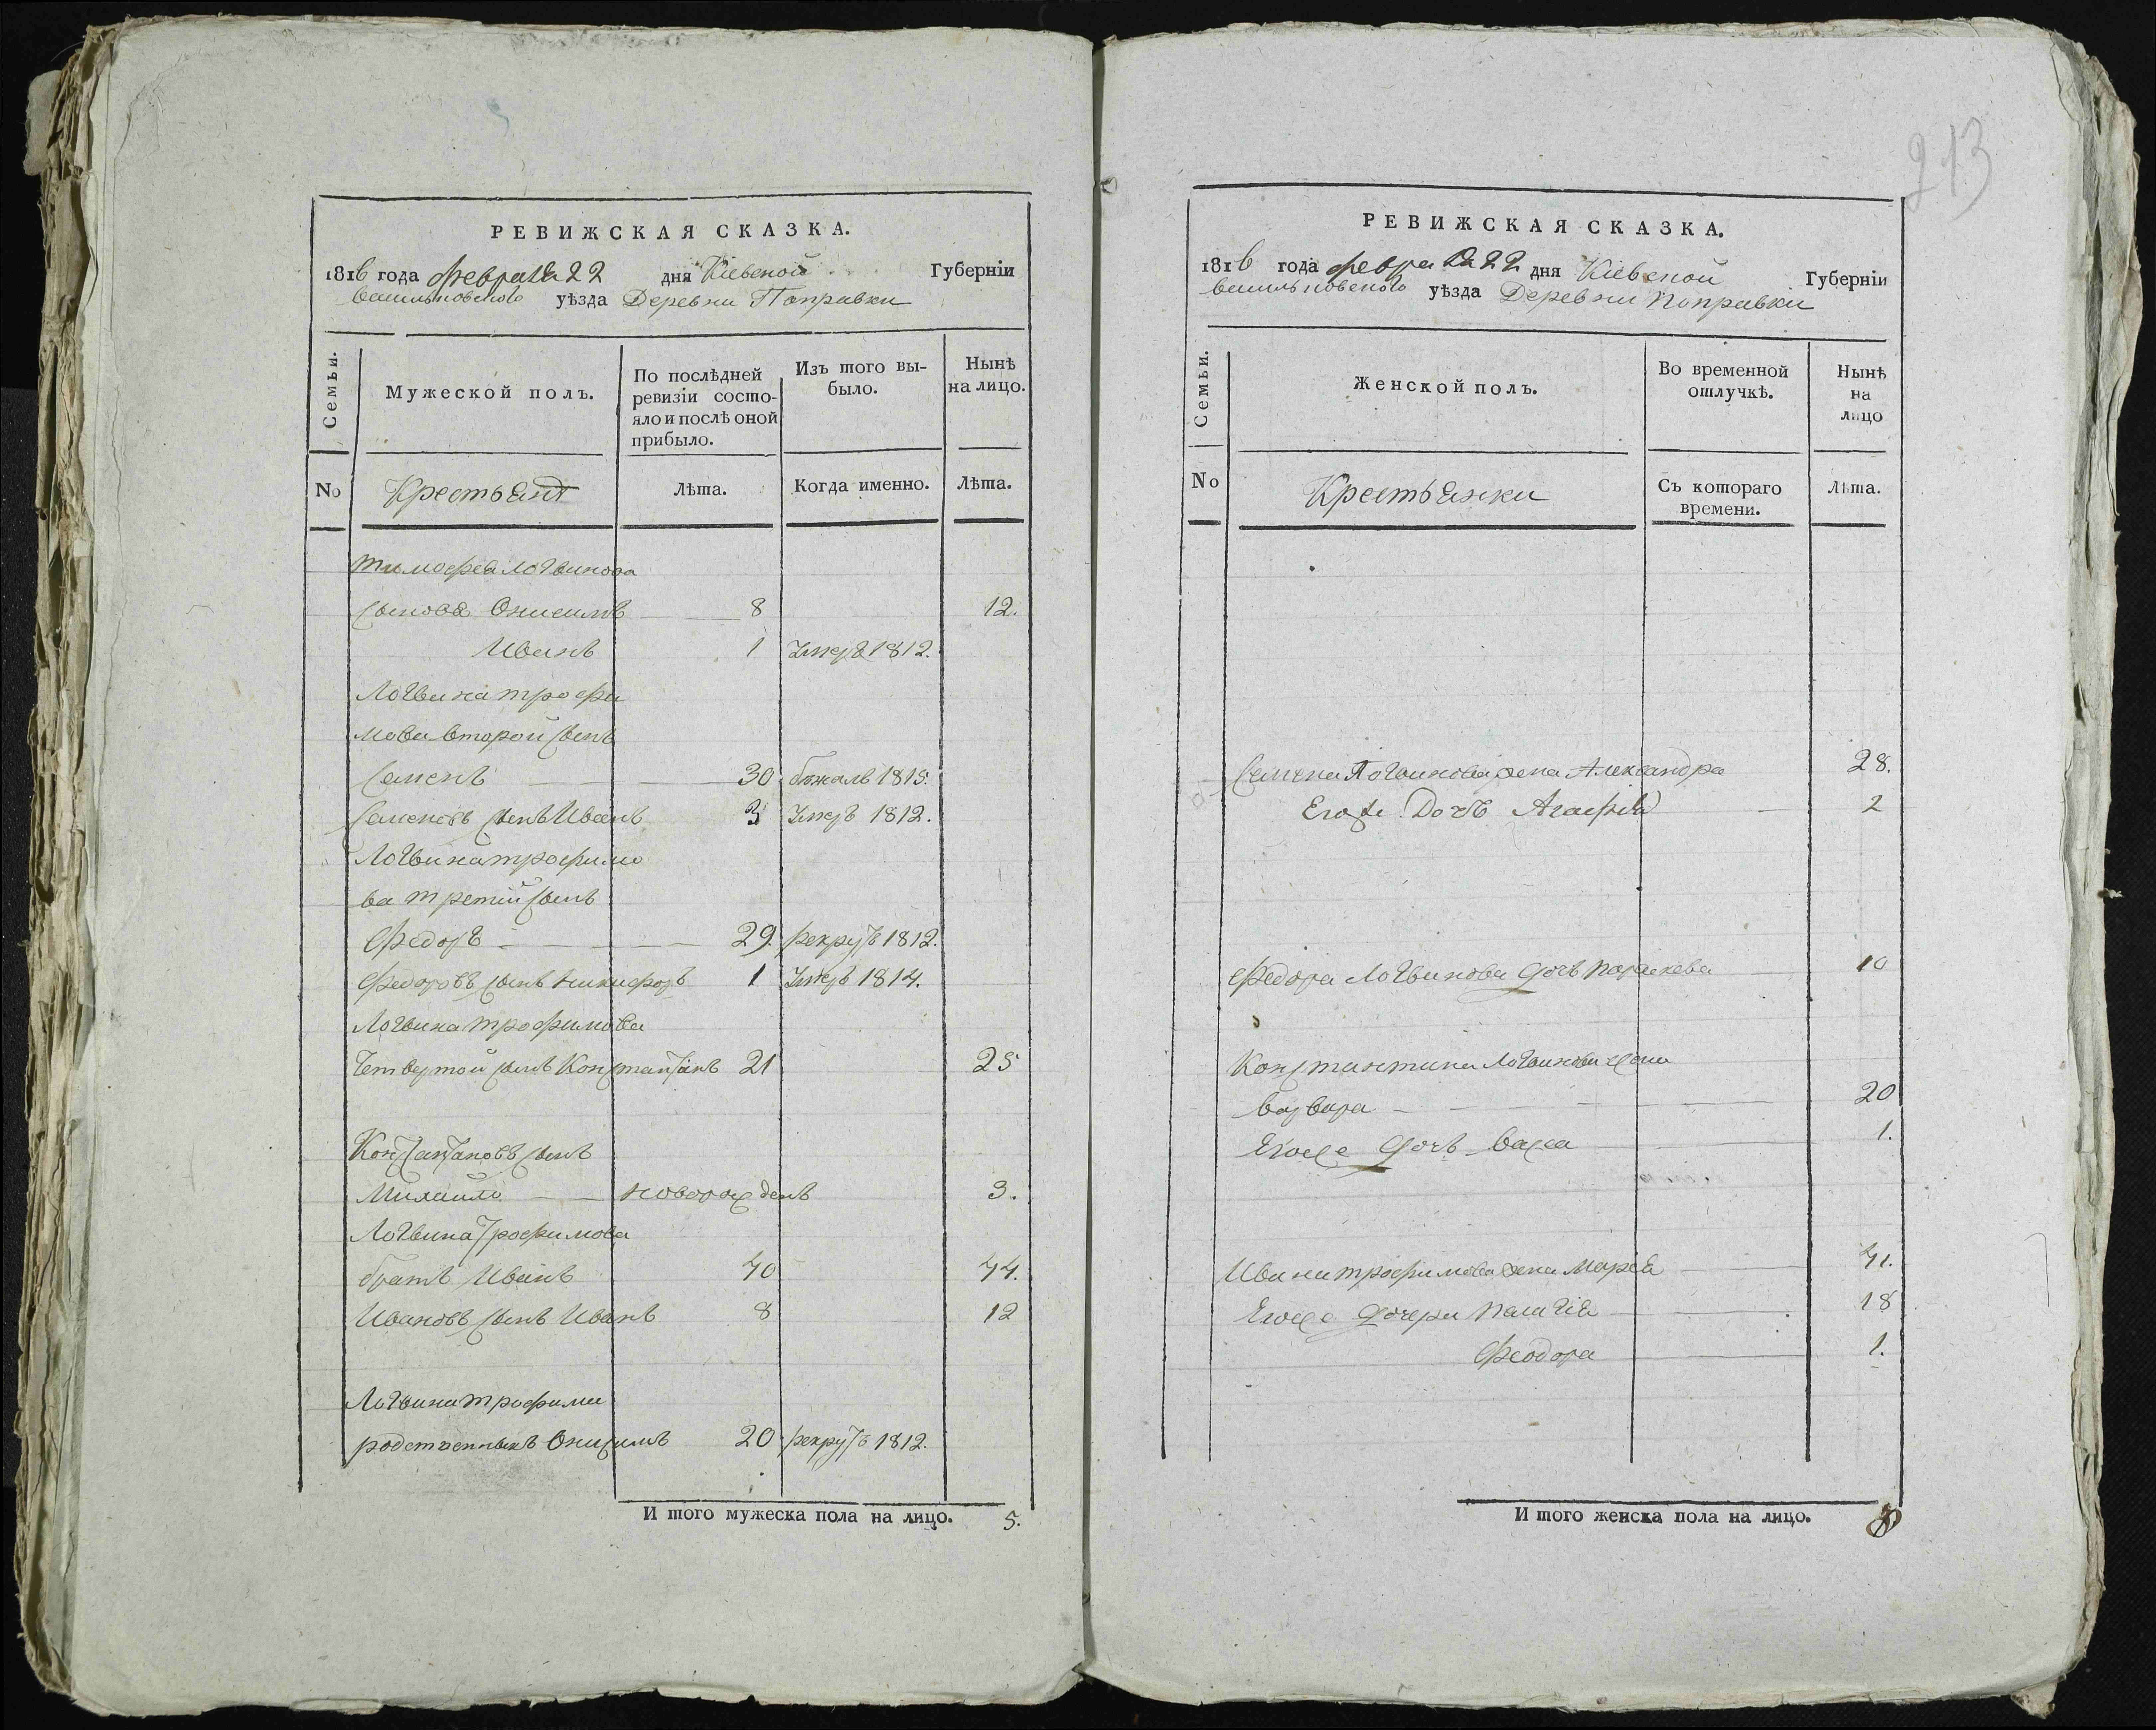 213
РЕВИЖСКАЯ СКАЗКА.
1816 года февраля 22 дня Кіевской Губерніи
васильковского уѣзда Деревни Поправки
Семьи.
Мужеской полъ.
По послѣдней ревизіи состояло и послѣ оной прибыло.
Изъ того выбыло.
Нынѣ на лицо.
No
Крестьянъ
Лѣта.
Когда именно.
Лѣта.
тимофея Логвинова
сыновья Онисимъ 8 12.
Иванъ 1 Умеръ 1812.
Логвина трофи
мова второй сынъ
Семенъ 30 бѣжалъ 1815.
Семеновъ сынъ Иванъ 3 Умеръ 1812.
Логвина трофимо
ва третий сынъ
Федоръ 29. рекрутъ 1812.
Федоровъ сынъ никифоръ 1 Умеръ 1814.
Логвина трофимова
Четвертой сынъ Константинъ 21 25
Константиновъ сынъ
Михайло новорожденъ 3.
Логвина Трофимова
братъ Иванъ 40 44.
Ивановъ сынъ Иванъ 8 12
Логвина трофима
родственникъ Онисимъ 20 рекрутъ 1812.
И того мужеска пола на лицо. 5.
РЕВИЖСКАЯ СКАЗКА.
1816 года февраля 22 дня Кіевской Губерніи
васильковского уѣзда Деревни поправки
Семьи.
Женской полъ.
Во временной отлучкѣ.
Нынѣ на лицо
No
Крестьянки
Съ котораго времени.
Лѣта.
Семена Логвинова жена Александра 28.
Его же Дочь Агафия 2
Федора Логвинова дочь параскева 10
Константина Логвинова жена
варвара 20
Его же дочь васса 1.
Ивана трофимова жена Марья 41.
Его же дочери палагія 18
Феодора 1.
И того женска пола на лицо. 8